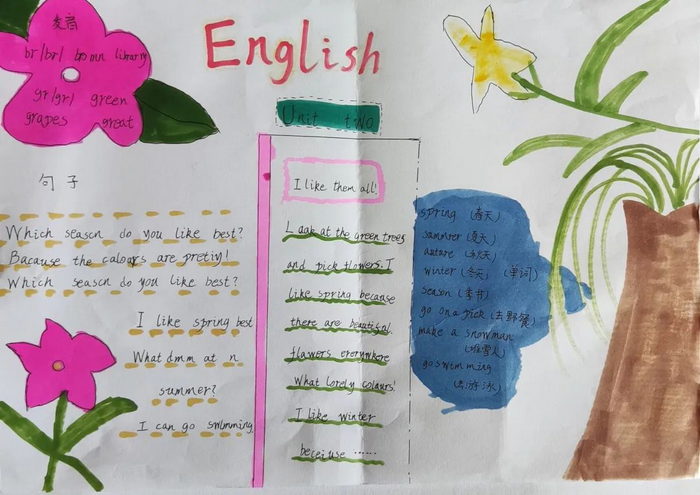 English
麦高
br/br/ brown library
gr/gr/ green
grapes great
Unit two
句子
Which season do you like best?
Bacause the calours are pretiy!
Which season do you like best?
I like spring best
What at n
summer?
I can go swimming
I like them all!
Look at the green trees
and pick flowers. I
like spring because
there are beautiful
flowers everywhere
What lovely colours!
I like winter
beceiuse ......
spring (春天)
summer (夏天)
autare (秋天)
winter (冬天) (单词)
season (季节)
go on a pick (去野餐)
make a snowman
(堆雪人)
go swimming
(去游泳)